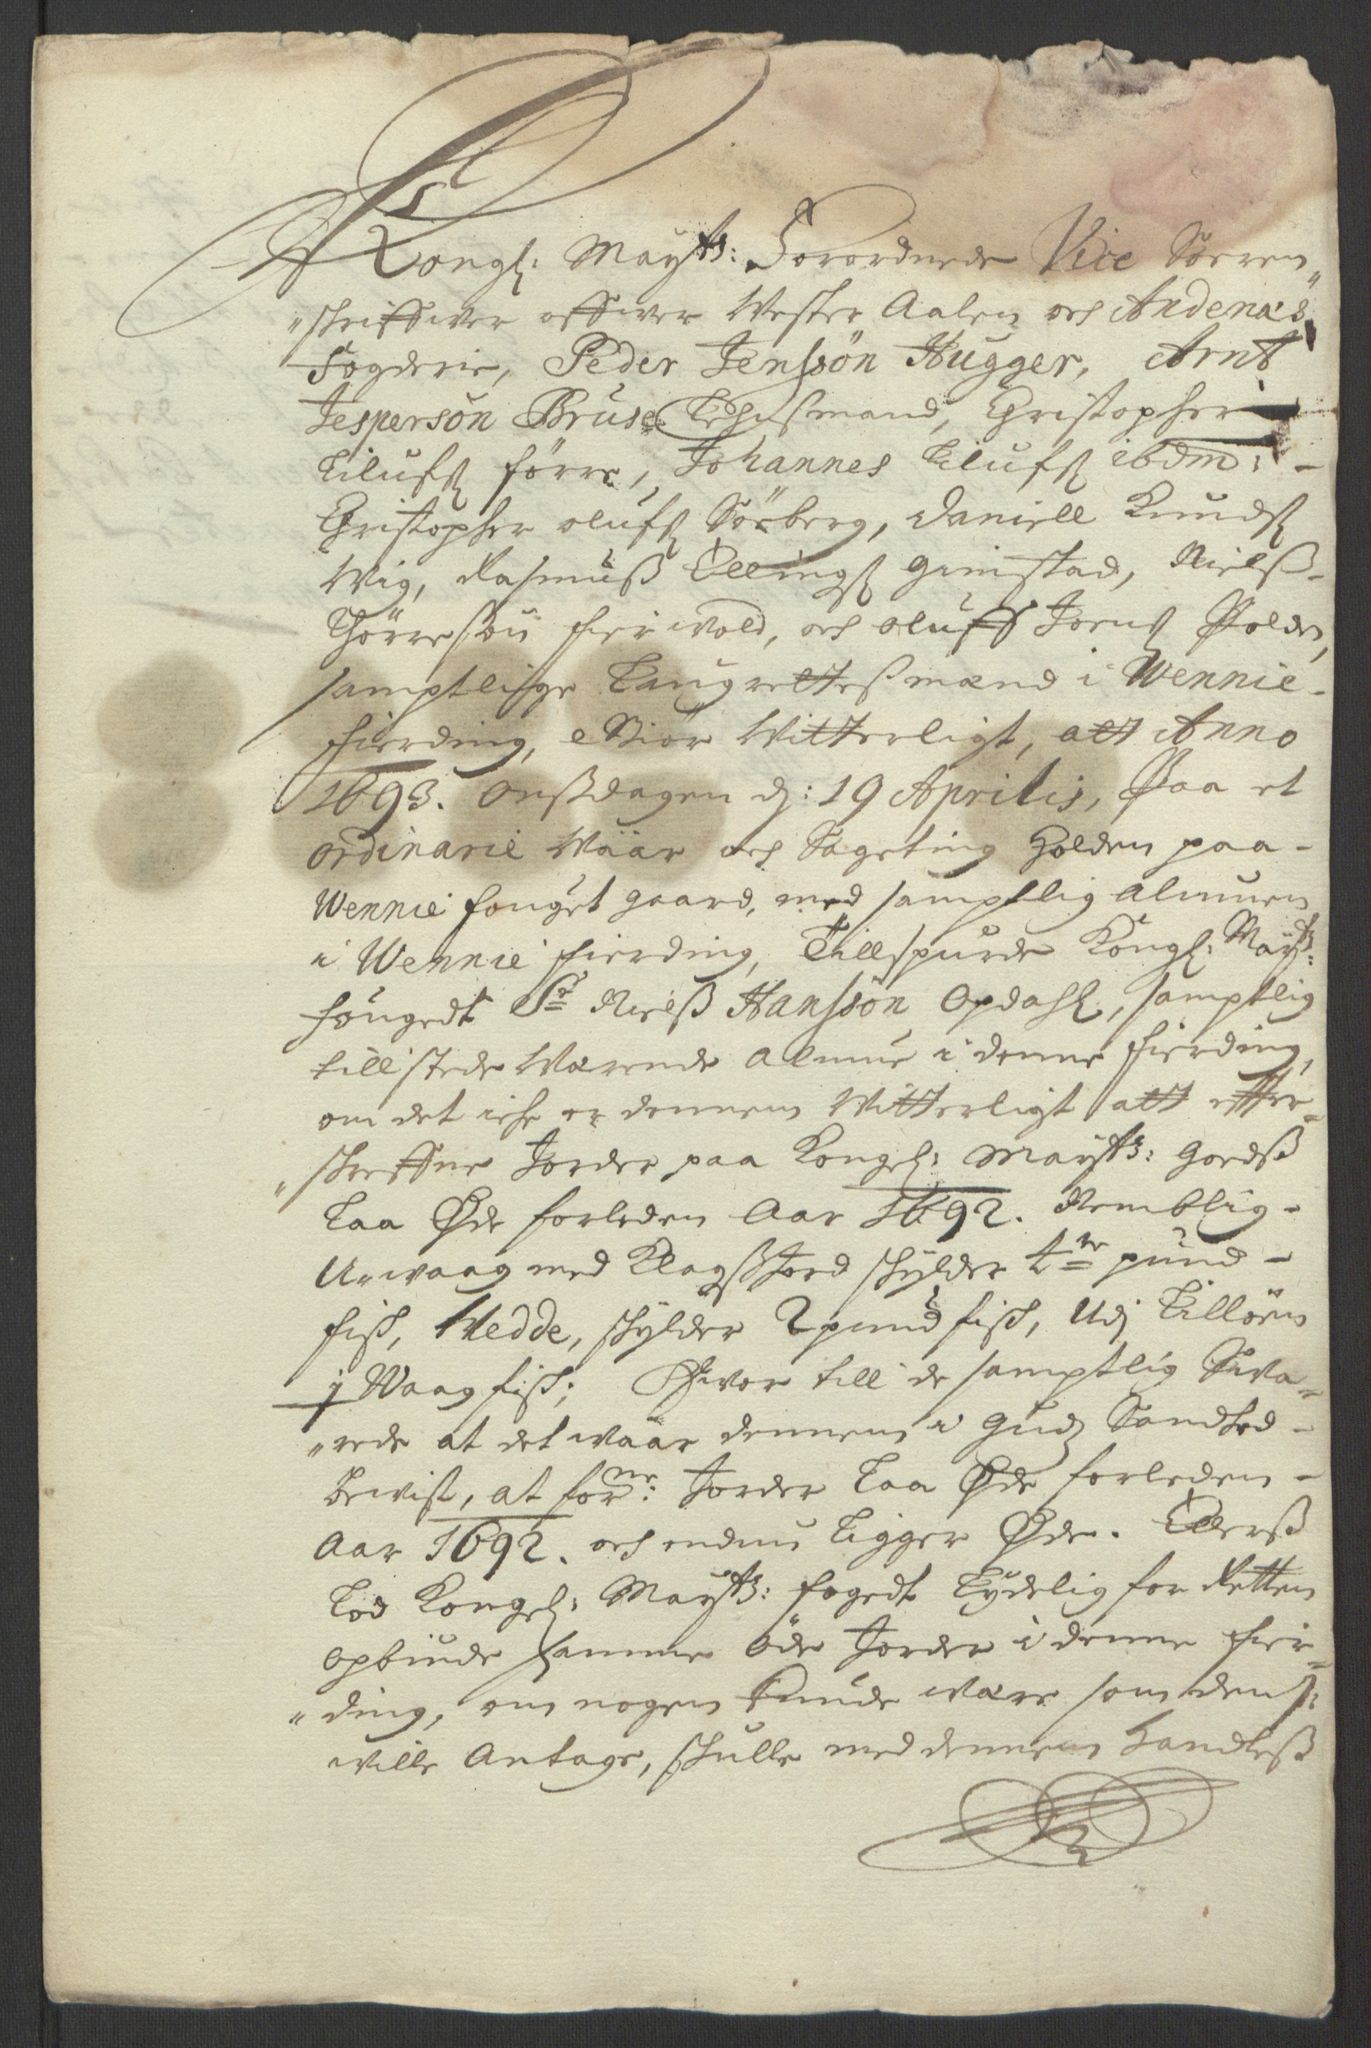 Kongl: Mayts: Forordnede Vice Soeren„
„schriffwer offwer Wester Aalen och Andenæs
Fogderie, Peder Jenssön Hugger, Arnt
Jespersön Bruse Lehnßmand, Christopher
Eilufs förre, Johannes Eilufs ibdm: -
Christopher olufs Söeberg, Daniell Knuds
Wig, Rasmuß Ellings Gimstad, Nielß
Thörresön fierwold, och oluff Joens Polden,
samptlige Laugrettesmænd i Wennie-
fierding, Giör Witterligt, att Anno
1693. Onßdagen d: 19 Aprilis, Paa et
ordinarie Waar och Sageting holden paa-
Wennie fouget gaard, med samptlig Almuen
i Wennie fierding, Tillspurde Kongl: Mayts:
fougedt Sr Nielß Hanssön Opdahl, samptlig
tillstede Wærende Almue i denne fierding,
om det iche er dennem Witterligt att effter-
„schreffne Jorder paa Kongel: Mayts: Goedß
Laa Øde forleden Aar 1692. Nemblig-
Urwaag med Klagßjord schylder tre pund-
fisch, Medde, schylder 2 pund fisch, Udj Lilløen
1 Waag fisch; Hwor till de samptlig Swa-
„rede at det waar dennem i Guds Sandhed-
bewist, at forne: Jorder Laa Øde forleden-
Aar 1692. och endnu Ligger Øde. Ellerß
Lod Kongel: Mayts: fogedt Lydelig for Retten
opbiude samme öde Jorder i denne fier-
„ding, om nogen kunde være som dens:
wille Antage, schulle med dennem handleß